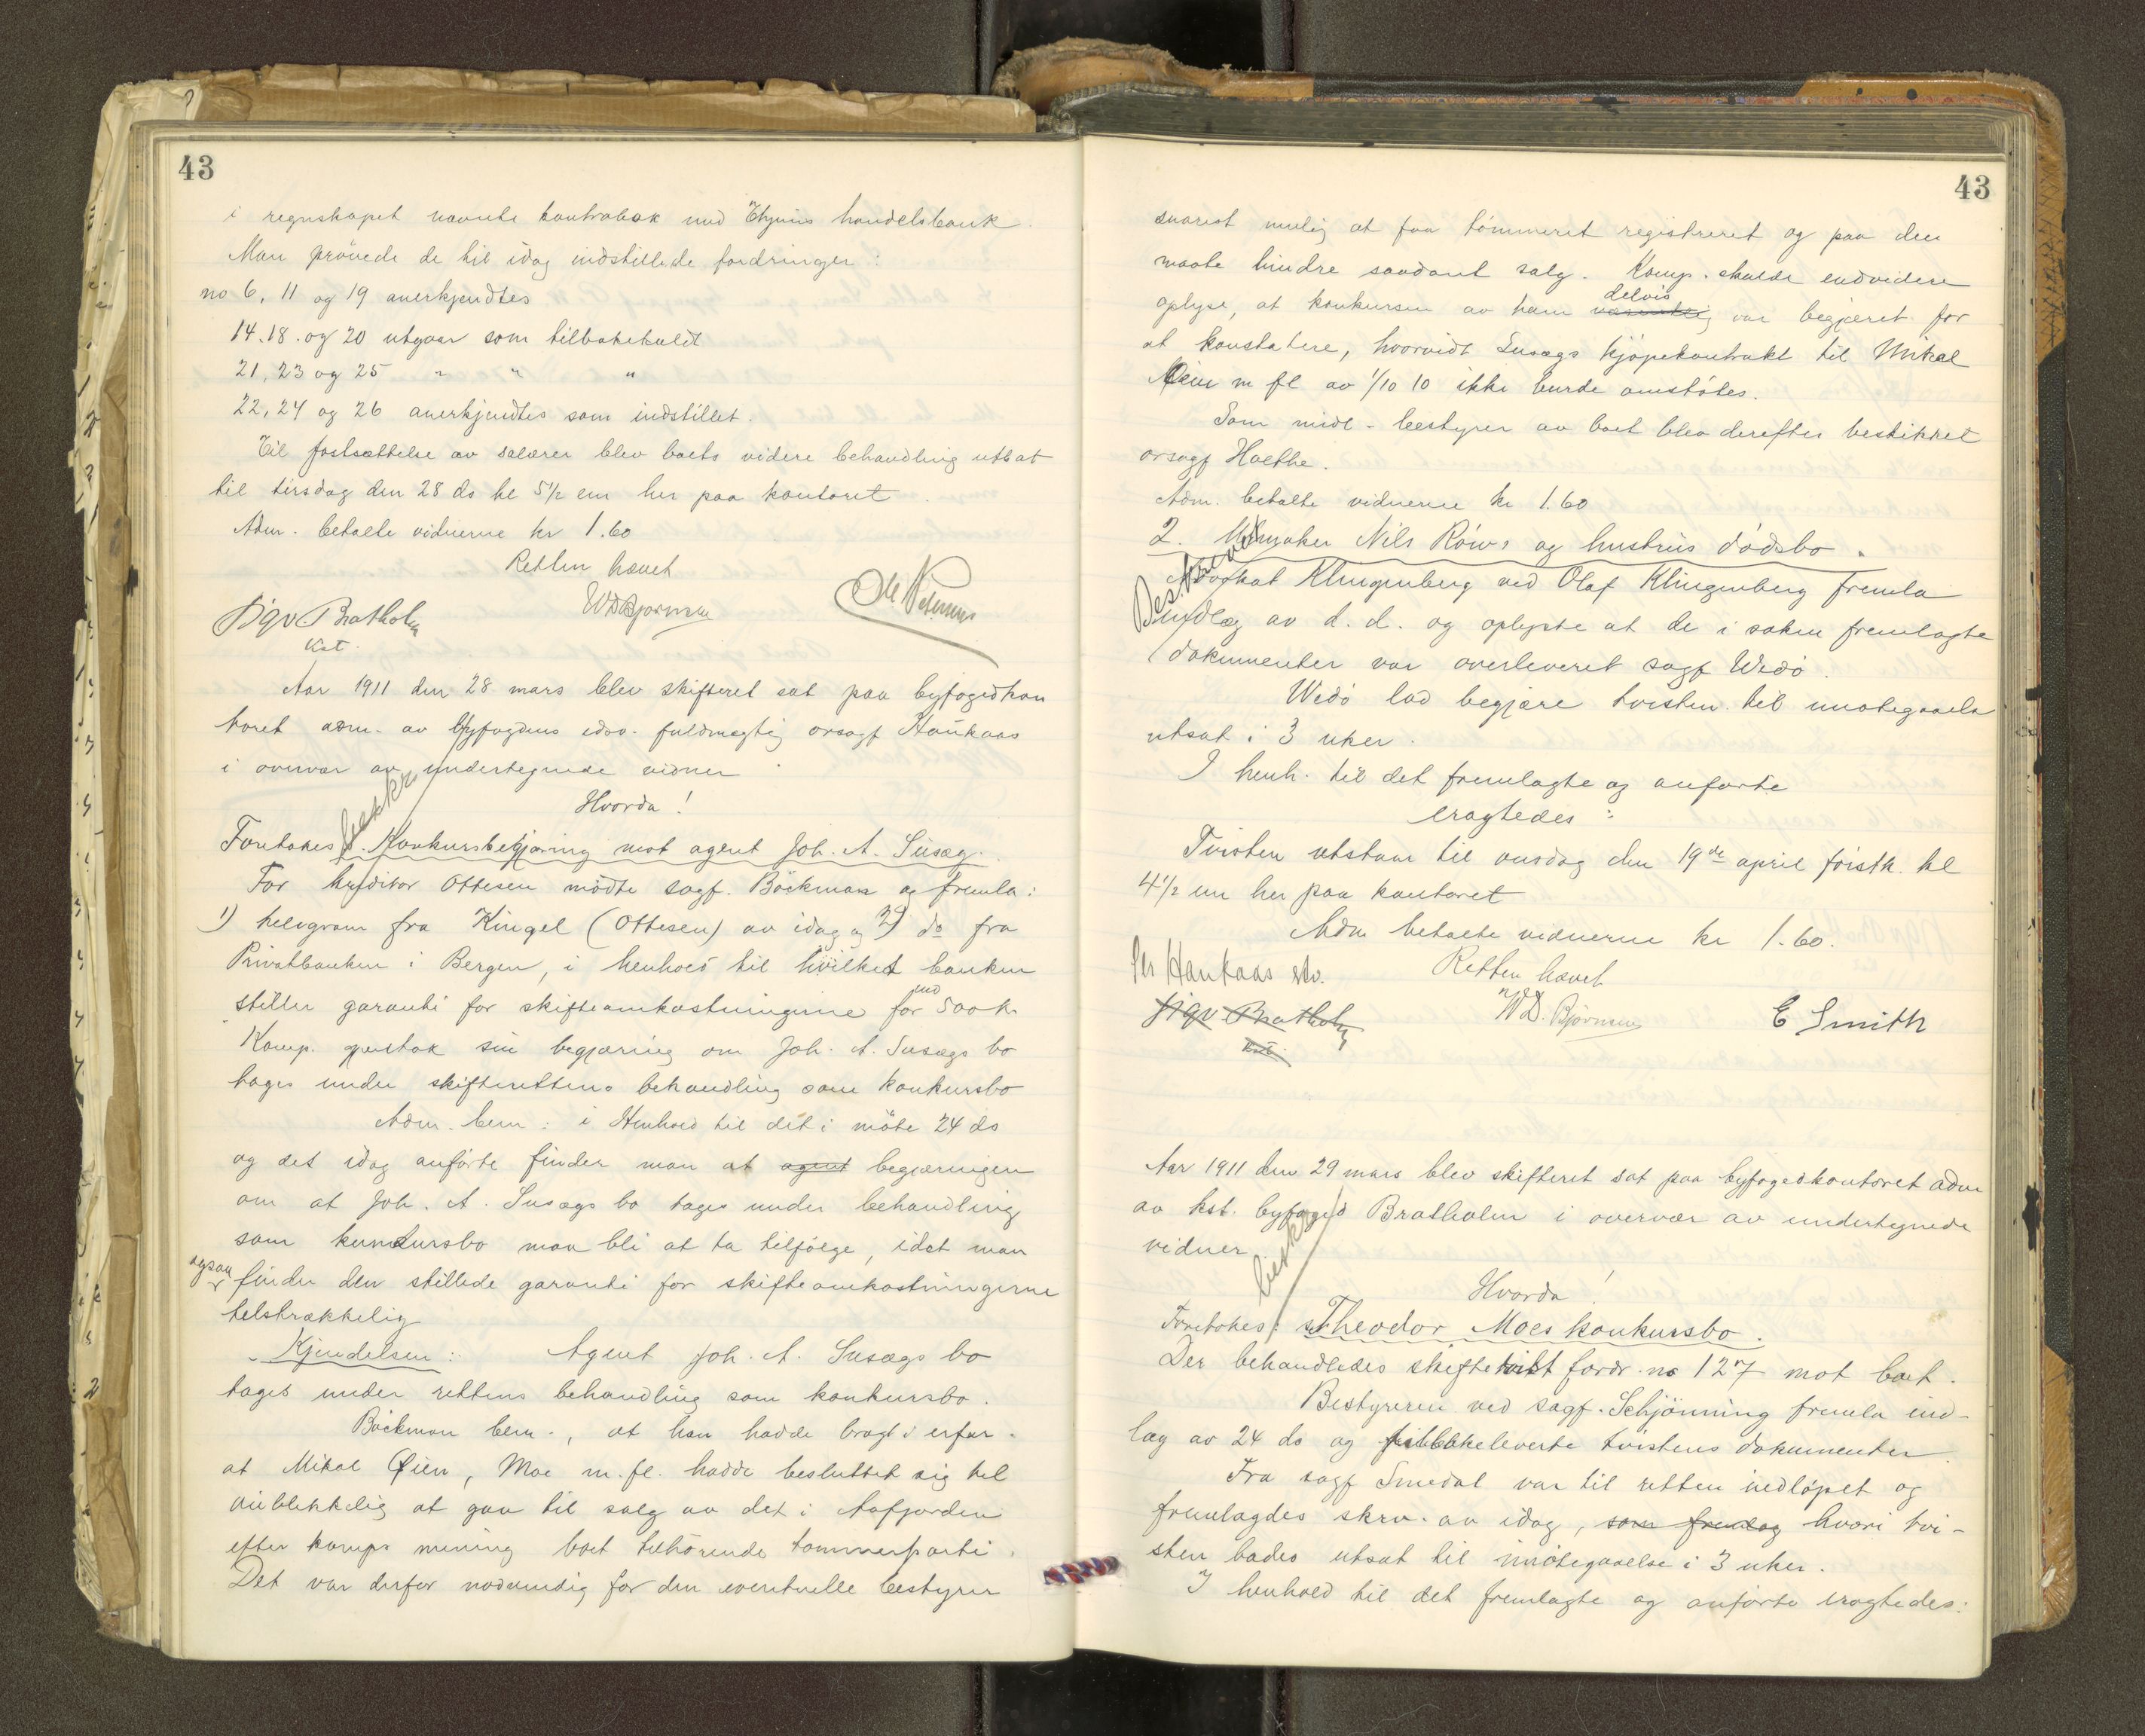 43
i regnskapet nævnte kontrabok med Thjems handelsbank.
Man prövede de til idag indstillede fordringer:
no 6, 11 og 19 anerkjendtes
14. 18. og 20 utgaar som tilbakekaldt
21, 23 og 25 " " "
22, 24 og 26 anerkjendtes som indstillet.
Til fastsættelse av salærer blev boets videre behandling utsat
til tirsdag den 28 ds kl 5 1/2 em her paa kontoret.
Adm. betalte vidnerne kr 1.60
Retten hævet
Sigv Bratholm WD Bjørnsen
kst.
Aar 1911 den 28 mars blev skifteret sat paa byfogedkon
toret adm. av byfogdens edsv. fuldmægtig orsagf Haukaas
i overvær av undertegnede vidner
Hvorda!
Foretokes 1. Konkursbegjæring mot agent Joh. A. Susæg.
For kreditor Ottesen mödte sagf. Böckman og fremla:
1) telegram fra Kingel (Ottesen) av idag og 2) do fra
Privatbanken i Bergen, i henhold til hvilket banken
stiller garanti for skifteomkostningerne for ind 500 kr.
Komp. gjentok sin begjæring om Joh. A. Susægs bo
tages under skifterettens behandling som konkursbo
Adm. bem: i Henhold til det i möte 24 ds
og det idag anförte finder man at agent begjæringen
om at Joh. A. Susægs bo tages under behandling
som konkursbo maa bli at ta tilfölge, idet man
ogsaa finder den stillede garanti for skifteomkostningerne
tilstrækkelig
Kjendelsen: Agent Joh. A. Susægs bo
tages under rettens behandling som konkursbo.
Böckman bem., at han hadde bragt i erfar.
at Mikal Øien, Moe m. fl. hadde besluttet sig til
öieblikkelig at gaa til salg av det i Aafjorden
efter komps mening boet tilhörende tømmerparti.
Det var derfor nödvendig for den eventuelle bestyrer
43
snarest mulig at faa tömmeret registreret og paa den
maate hindre saadant salg. Komp. skulde endvidere
oplyse, at konkursen av ham delvis var begjæret for
at konstatere, hvorvidt Susægs kjöpekontrakt til Mikal
Øien m fl av 1/10 10 ikke burde omstötes.
Som midl-bestyrer av boet blev derefter beskikket
orsagf Holthe.
Adm. betalte vidnerne kr 1.60
2. Urmaker Nils Röws og hustrus dödsbo.
Beskrevet
Advokat Klingenberg ved Olaf Klingenberg fremla
indlæg av d. d. og oplyste at de i saken fremlagte
dokumenter var overleveret sagf Wedö.
Wedö lod begjære tvisten til imötegaaelse
utsat i 3 uker.
I henh. til det fremlagte og anförte
eragtedes:
Tvisten utstaar til onsdag den 19de april förstk. kl
4 1/2 em her paa kontoret
Adm betalte vidnerne kr 1.60.
Retten hævet
Haukaas
Sigv Bratholm WD. Bjørnsen E Smith
kst.
Aar 1911 den 29 mars blev skifteret sat paa byfogedkontoret adm
av kst. byfoged Bratholm i overvær av undertegnede
vidner
Hvorda!
Foretokes: Theodor Moes konkursbo.
Der behandledes skiftetvist fordr. no 127 mot boet.
Bestyreren ved sagf. Schjönning fremla ind-
læg av 24 ds og tilbakeleverte tvistens dokumenter.
Fra sagf Smedal var til retten indlöpet og
fremlagdes skrv. av idag, som fremlag hvori tvi-
sten bades utsat til imötegaaelse i 3 uker.
I henhold til det fremlagte og anförte eragtedes: